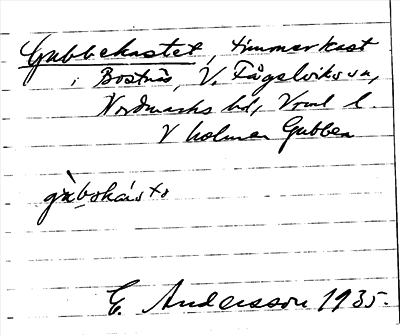 Gubbekastet, timmerkast
i Bosnäs, V. Fågelviks sn,
Nordmarks hd, Vrml l.
V holmen Gubben
gùbǝkás tǝ
E. Andersson 1935.